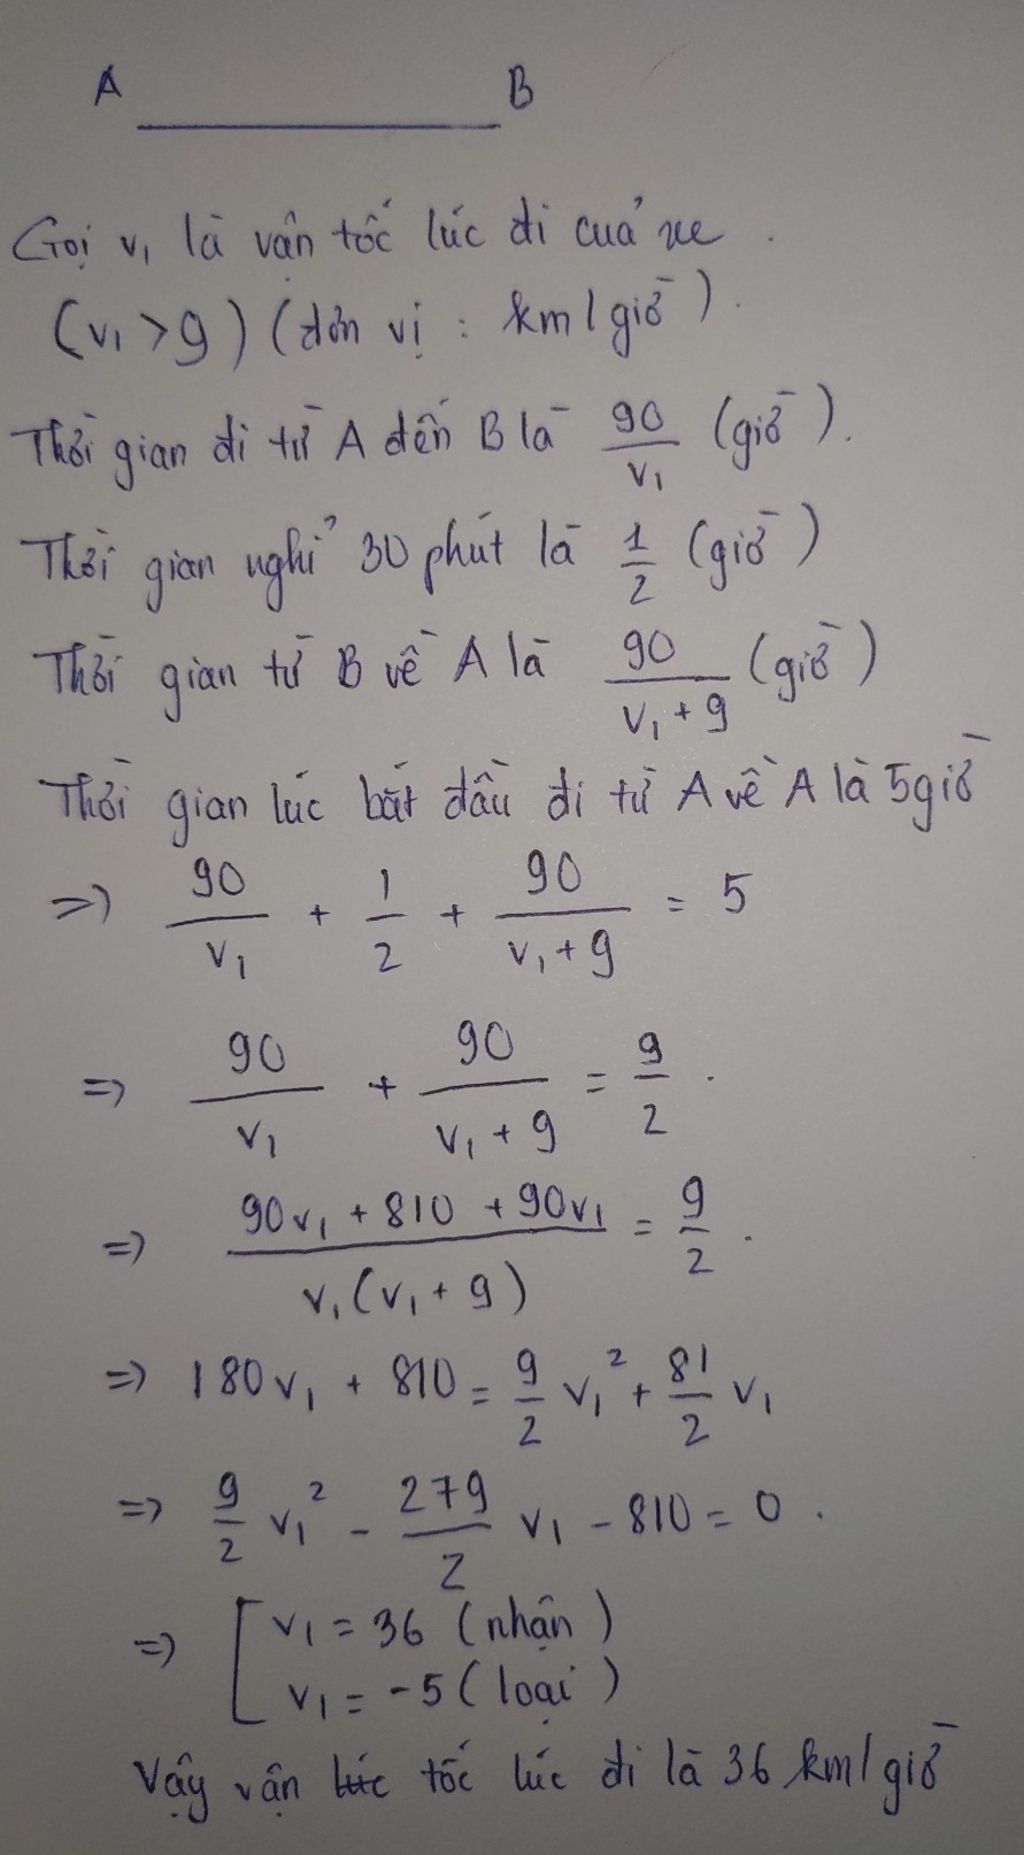 A B
Gọi v₁ là vận tốc lúc đi của xe.
(v₁ > 9) (đơn vị : km/giờ).
Thời gian đi từ A đến B là 90/v₁ (giờ).
Thời gian nghỉ 30 phút là 1/2 (giờ)
Thời gian từ B về A là 90/(v₁ + 9) (giờ)
Thời gian lúc bắt đầu đi từ A về A là 5 giờ
=> 90/v₁ + 1/2 + 90/(v₁ + 9) = 5
=> 90/v₁ + 90/(v₁ + 9) = 9/2.
=> (90v₁ + 810 + 90v₁)/(v₁(v₁ + 9)) = 9/2.
=> 180v₁ + 810 = 9/2 v₁² + 81/2 v₁
=> 9/2 v₁² - 279/2 v₁ - 810 = 0.
=> [ v₁ = 36 (nhận)
v₁ = -5 (loại)
Vậy vận tốc lúc đi là 36 km/giờ